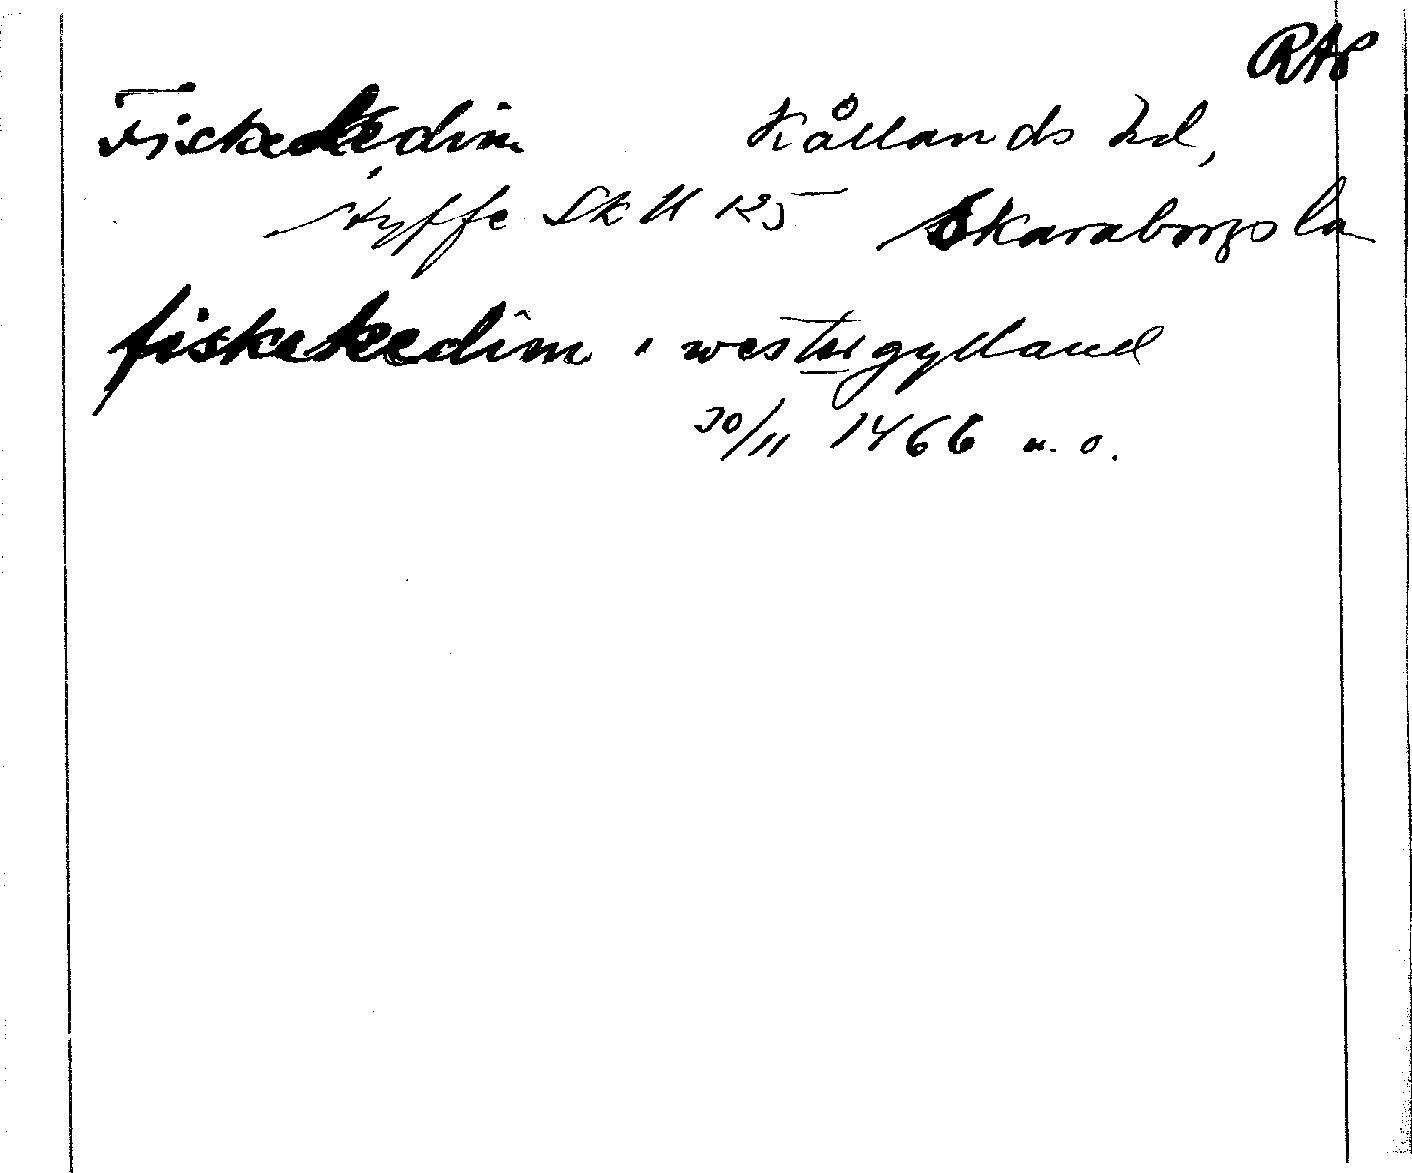 RAP
Fiskekedim Kållands hd,
Styffe Sk U 125 Skaraborgs län
fiskekedim i westhegylland
30/11 1466 u. o.